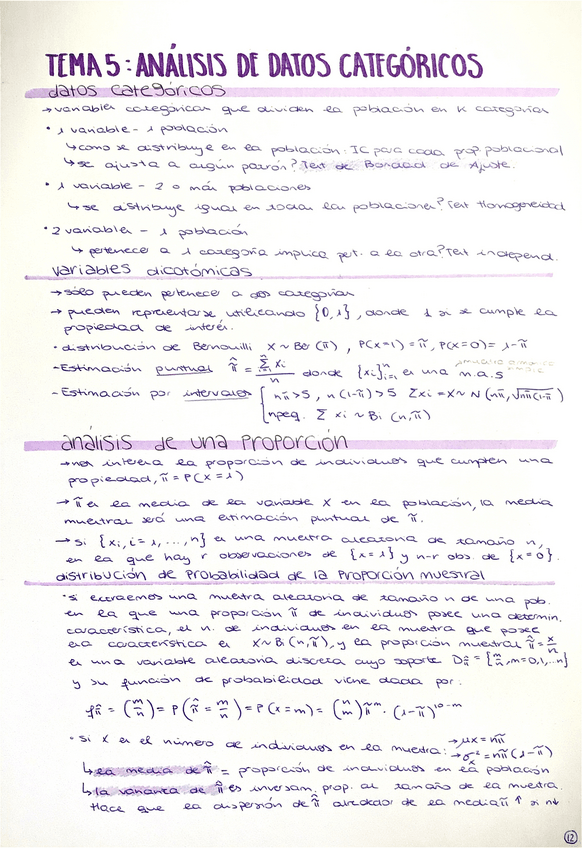 TEMA 5: ANÁLISIS DE DATOS CATEGÓRICOS
datos categóricos
→ variables categóricas que dividen la población en K categorías
• 1 variable - 1 población
↳ como se distribuye en la población: IC para cada prop. poblacional
↳ se ajusta a algún patrón? Test de Bondad de Ajuste.
• 1 variable - 2 o más poblaciones
↳ se distribuye igual en todas las poblaciones? Test Homogeneidad
• 2 variables - 1 población
↳ pertenecer a 1 categoría implica pert. a la otra? Test independ.
variables dicotómicas
→ sólo pueden pertenecer a dos categorías
→ pueden representarse utilizando {0,1}, donde 1 si se cumple la
propiedad de interés.
• distribución de Bernouilli X ~ Be(π), P(X=1) = π, P(X=0) = 1-π
- Estimación puntual π̂ = Σxi/n donde {xi}ⁿi=1 es una m.a.s
- Estimación por intervalos { nπ>5, n(1-π)>5 Σxi=X~N(nπ, √nπ(1-π))
npeq. Σxi ~ Bi(n,π)
análisis de una proporción
→ nos interesa la proporción de individuos que cumplen una
propiedad, π = P(X=1)
→ π es la media de la variable X en la población, la media
muestral será una estimación puntual de π.
→ si {xi, i=1,...,n} es una muestra aleatoria de tamaño n,
en la que hay r observaciones de {x=1} y n-r obs. de {x=0}.
distribución de probabilidad de la proporción muestral
• si extraemos una muestra aleatoria de tamaño n de una pob.
en la que una proporción π de individuos posee una determin.
característica, el n. de individuos en la muestra que posee
esa característica es X~Bi(n,π), y la proporción muestral π̂ = x/n
es una variable aleatoria discreta cuyo soporte Dπ̂ = {m/n, m=0,1,...n}
y su función de probabilidad viene dada por:
fπ̂ = (m/n) = P(π̂ = m/n) = P(x=m) = (n m) πᵐ · (1-π)¹⁰⁻ᵐ
• si X es el número de individuos en la muestra: → μx = nπ
→ σ²x = nπ(1-π)
↳ la media de π̂ = proporción de individuos en la población
↳ la varianza de π̂ es inversam. prop. al tamaño de la muestra.
Hace que la dispersión de π̂ alrededor de la media π ↑ si n↓
12